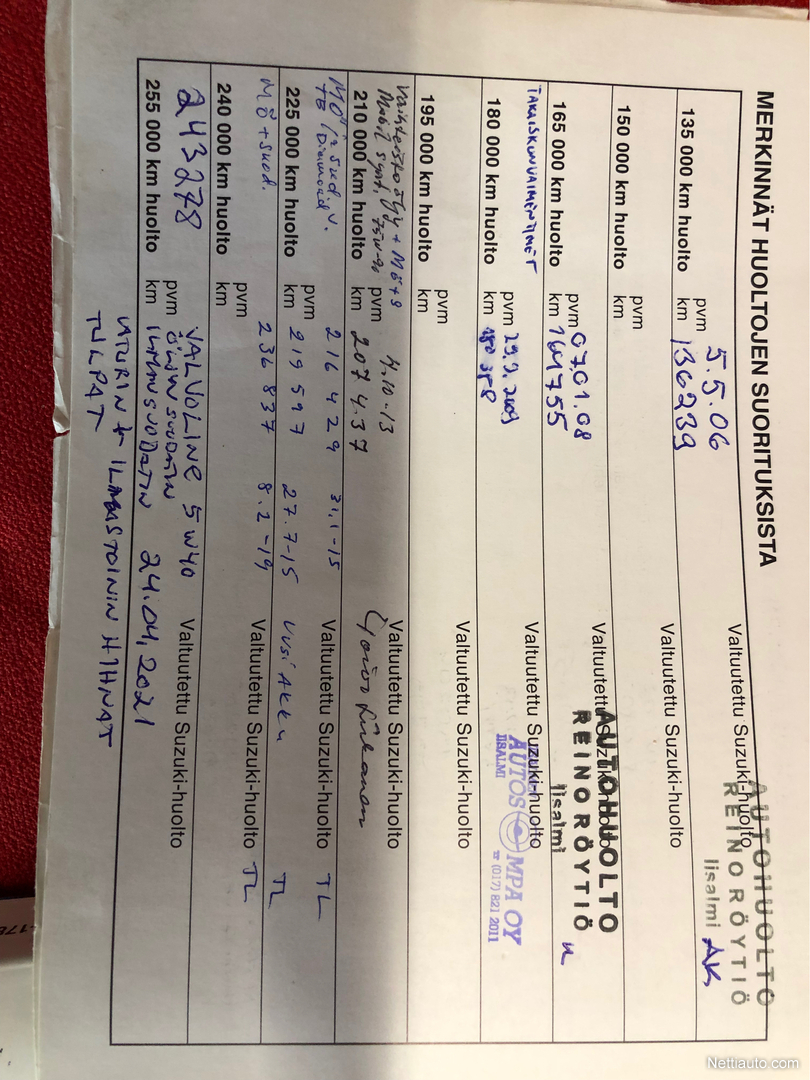 MERKINNÄT HUOLTOJEN SUORITUKSISTA
135 000 km huolto
pvm 5.5.06
km 136239
Valtuutettu Suzuki-huolto
AUTOHUOLTO
REINO RÖYTIÖ
Iisalmi
150 000 km huolto
pvm
km
Valtuutettu Suzuki-huolto
165 000 km huolto
pvm 07.01.08
km 164755
Valtuutettu Suzuki-huolto
AUTOHUOLTO
REINO RÖYTIÖ
Iisalmi
TAKAISKUNVAIMENTIMET
180 000 km huolto
pvm 29.9.2009
km 180 358
Valtuutettu Suzuki-huolto
AUTOSOMPA OY
IISALMI
☎ (017) 821 2011
195 000 km huolto
pvm
km
Valtuutettu Suzuki-huolto
Vaihteistoöljy + MÖ+S
Mobil synt. 75W-90
210 000 km huolto
pvm 4.10-13
km 207437
Valtuutettu Suzuki-huolto
MÖ ja suod. v.
TB Diamond
225 000 km huolto
pvm 216 429 31.1-15
km 219 597 27.7-15 Uusi AKKU
Valtuutettu Suzuki-huolto TL
TL
MÖ + suod.
240 000 km huolto
236 837 8.2-19
pvm
km
Valtuutettu Suzuki-huolto TL
243278
255 000 km huolto
pvm VALVOLINE 5W40
ÖLJYNSUODATIN
km ILMANSUODATIN 24.04.2021
Valtuutettu Suzuki-huolto
LATURIN + ILMASTOININ HIHNAT
TULPAT
Nettiauto.com